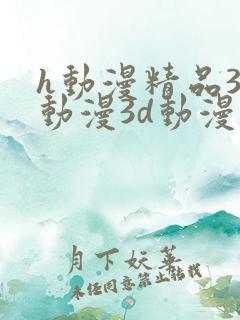 h動漫精品3
動漫3d動漫
月下妖華
未任同意禁止转载